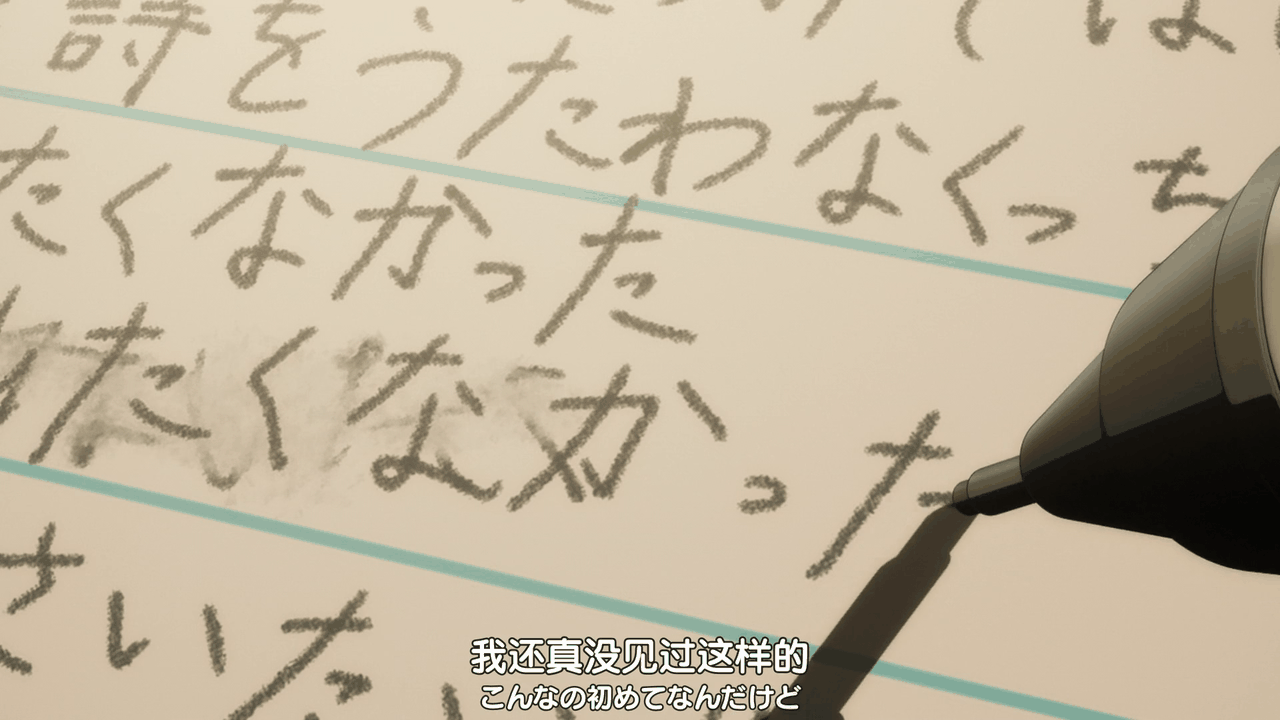 詩をうたわなくっち
たくなかった
たくなかった
さいた
我还真没见过这样的
こんなの初めてなんだけど